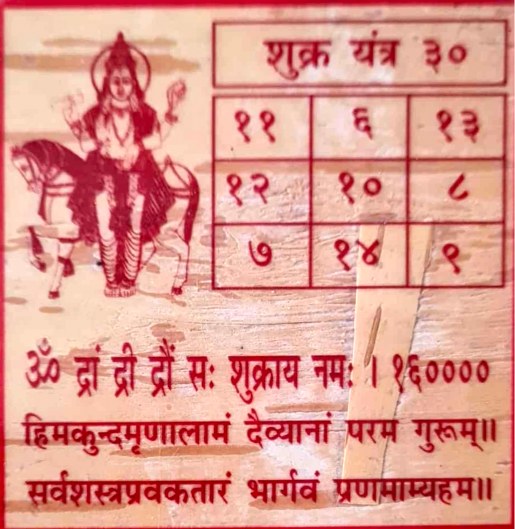 शुक्र यंत्र ३०
११ ६ १३
१२ १० ८
७ १४ ९
ॐ द्रां द्री द्रौं सः शुक्राय नमः । १६००००
हिमकुन्दमृणालामं दैव्यानां परम गुरूम्॥
सर्वशस्त्रप्रवकतारं भार्गवं प्रणमाम्यहम॥